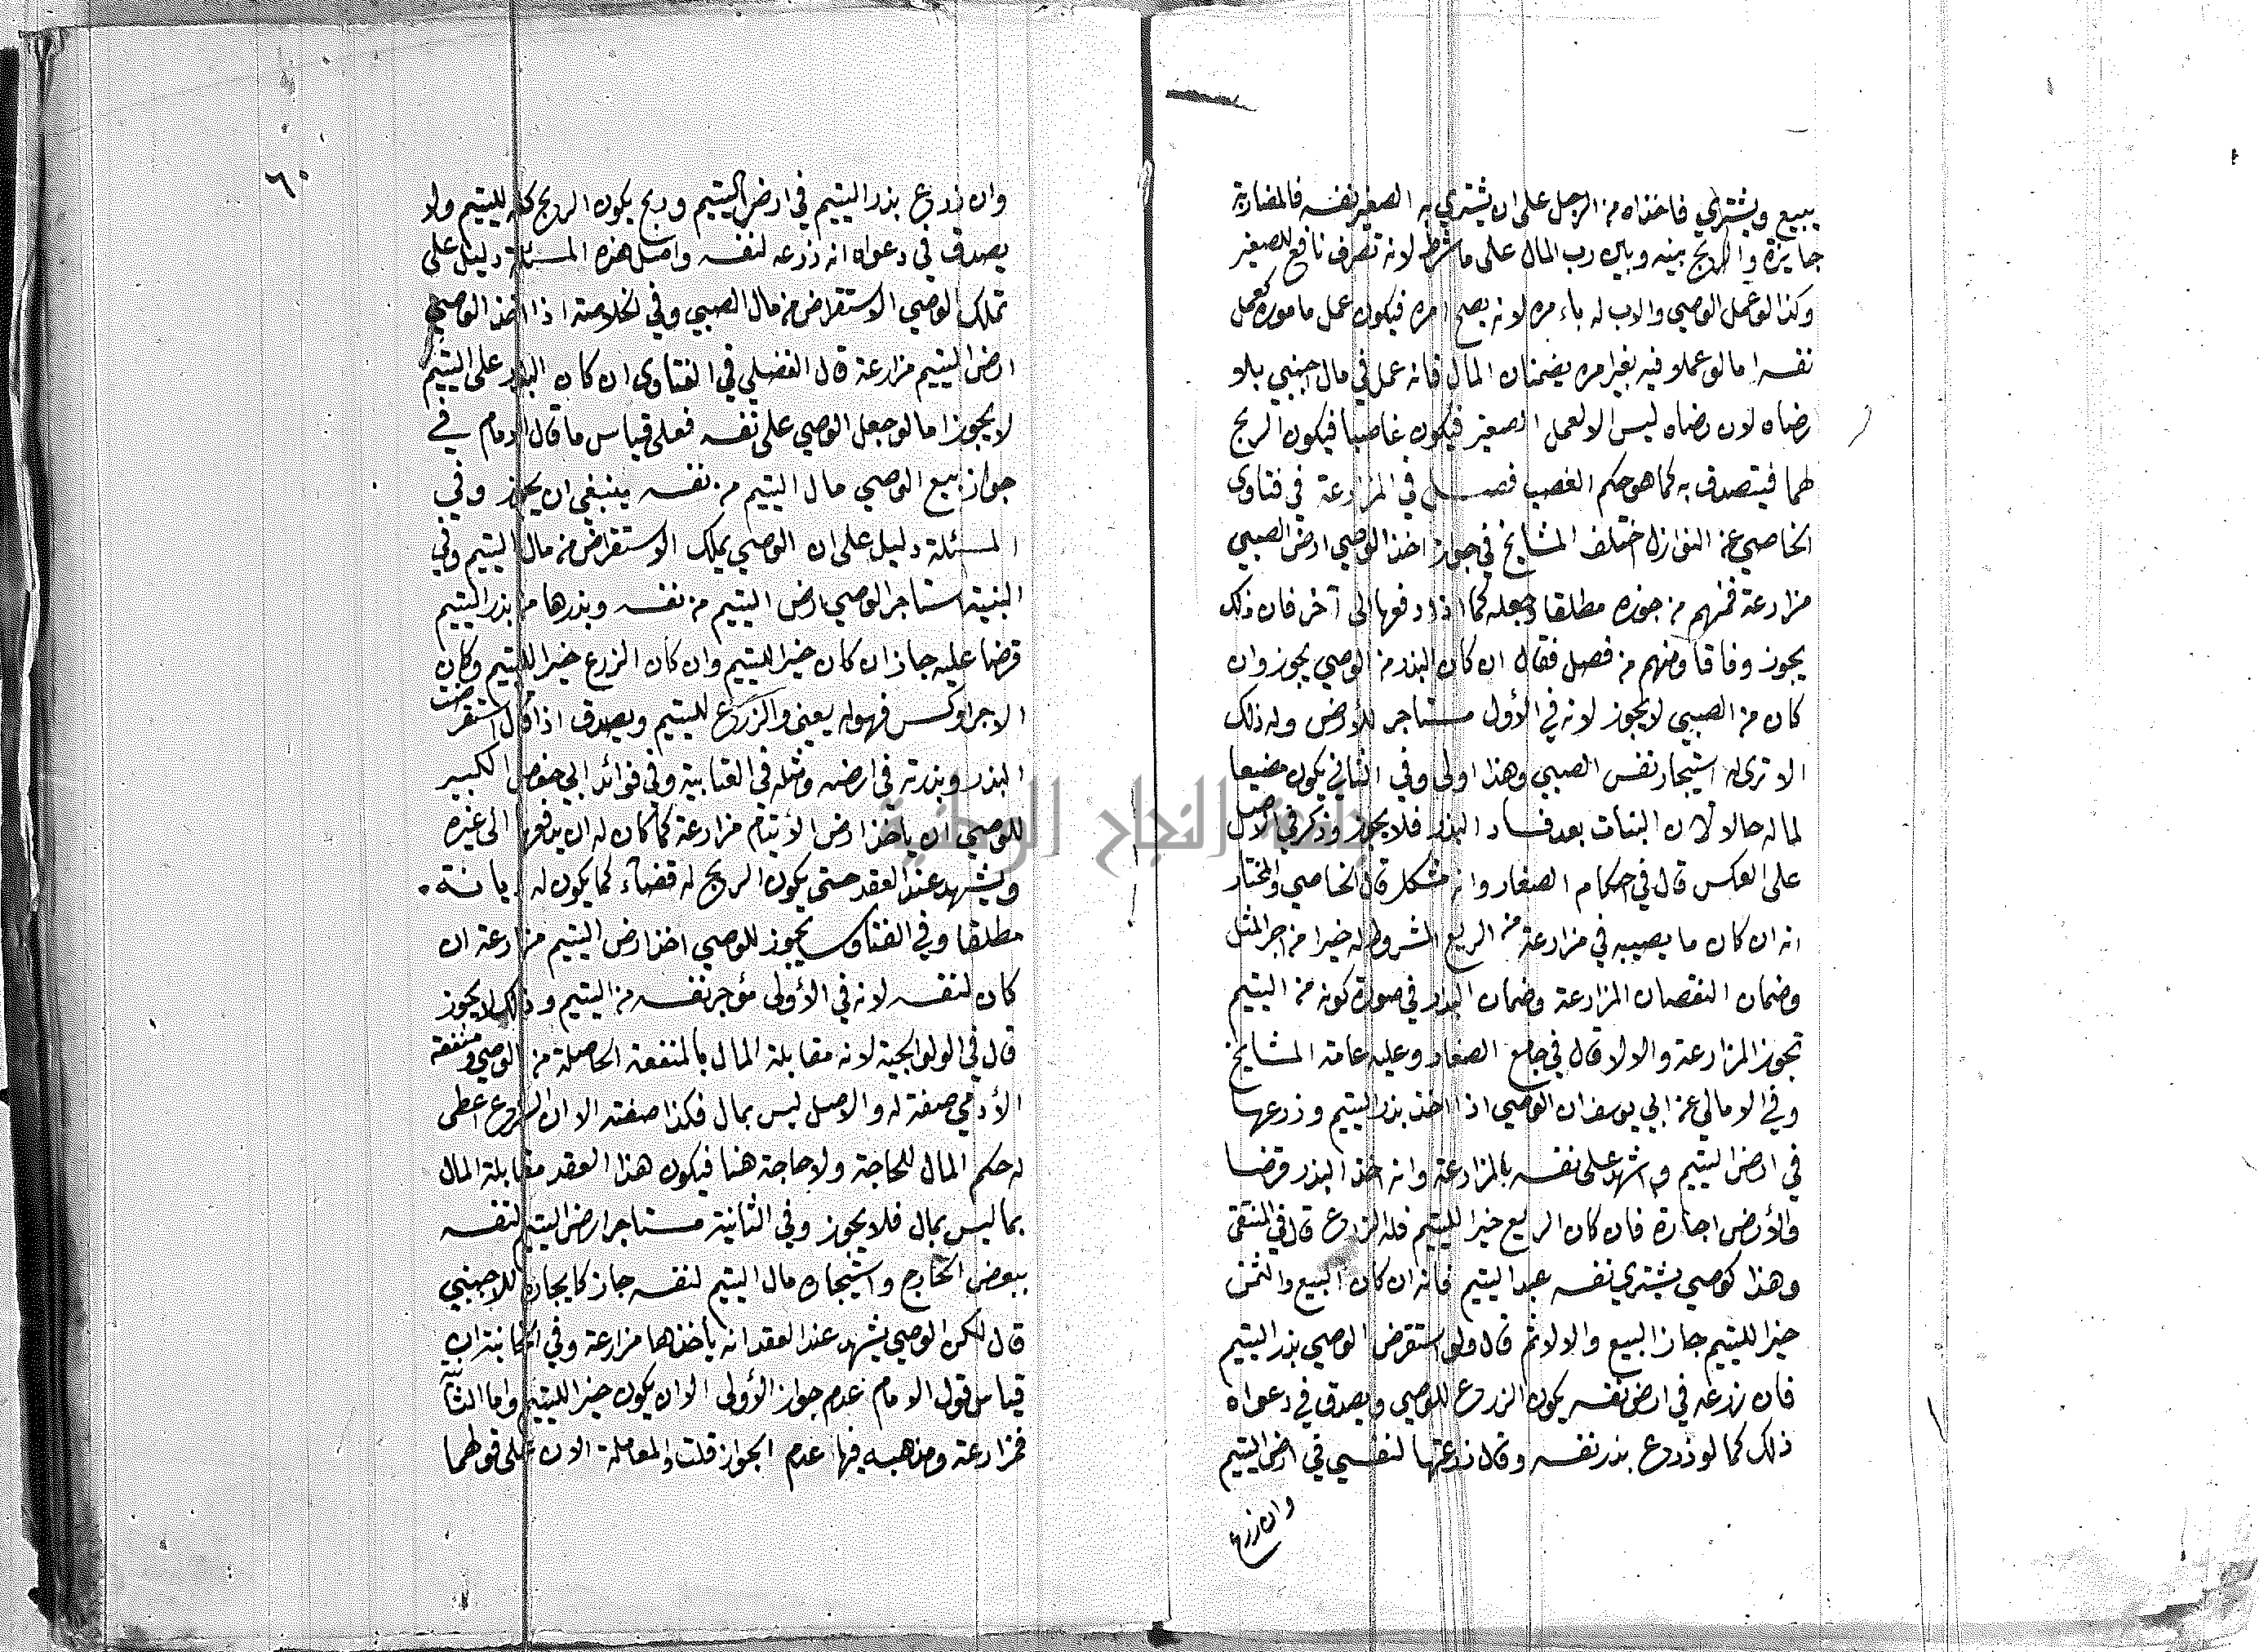 يبيع ويشتري فاخذاه من الرجل على ان يشتري به الصغير نفسه فالمضاربة
جايزة والربح بينه وبين رب المال على ما شرط لانه تصرف نافع للصغير
وكذا لو عمل الوصي والاب له باءمره لانه يصح امره فيكون عمل ماموره كعمل
نفسه اما لو عملا فيه بغير امره يضمنان المال فانه عمل في مال اجنبي بلا
رضاه لان رضاه ليس الا لعمل الصغير فيكون غاصبا فيكون الربح
لهما فيتصدق به كما هو حكم الغصب فصل في المزارعة في فتاوى
الخاصي عن النوازل اختلف المشايخ في جواز اخذ الوصي ارض الصبي
مزارعة فمنهم من جوزه مطلقا وجعله كما اذا دفعها الى آخر فان ذلك
يجوز وفاقا ومنهم من فصل فقال ان كان البذر من الوصي يجوز وان
كان من الصبي لا يجوز لانه في الأول مستاجر للأرض وله ذلك
الا ترى له استيجار نفس الصبي وهذا اولى وفي الثاني يكون مضيعا
لماله حالا لان النبات بعد فساد البذر فلا يجوز وذكر في الاصل
على العكس قال في احكام الصغار وانه مشكل قال الخاصي والمختار
انه ان كان ما يصيبه في مزارعة من الربع المشروط له خيرا من اجر المثل
وضمان النقصان المزارعة وضمان البذر في صورة كونه من اليتيم
تجوز المزارعة والا لا قال في جامع الصغار وعليه عامة المشايخ
وفي الامالي عن ابي يوسف ان الوصي اذا اخذ بذر اليتيم وزرعها
في ارض اليتيم واشهد على نفسه بالمزارعة وانه اخذ البذر قرضا
والأرض اجارة فان كان الريع خيرا لليتيم فله الزرع قال في المنتقى
وهذا كوصي يشتري نفسه عبد اليتيم فانه ان كان البيع والثمن
خيرا لليتيم جاز البيع والا لا ثم قال ولو استقرض الوصي بذر اليتيم
فان زرعه في ارض نفسه يكون الزرع للوصي ويصدق في دعواه
ذلك كما لو زرع بذر نفسه وقال زرعتها لنفسي في ارض اليتيم
وان زرع
٦٠
وان زرع بذر اليتيم في ارض اليتيم وربح يكون الربح كله لليتيم ولا
يصدق في دعواه انه زرعه لنفسه واصل هذه المسئلة دليل على
تملك الوصي الاستقراض من مال الصبي وفي الخلاصة اذا اخذ الوصي
ارض اليتيم مزارعة قال الفضلي في الفتاوى ان كان البذر على اليتيم
لا يجوز اما لو جعل الوصي على نفسه فعلى قياس ما قال الامام في
جواز بيع الوصي مال اليتيم من نفسه ينبغي ان يجوز وفي
المسئلة دليل على ان الوصي يملك الاستقراض من مال اليتيم وفي
استاجر الوصي ارض اليتيم من نفسه وبذرها من بذر اليتيم
قرضا عليه جاز ان كان خيرا لليتيم وان كان الزرع خيرا لليتيم وكان
الاجر اوكس فهو له يعني والزرع لليتيم ويصدق اذا قال استقرضت
البذر وبذرته في ارضه ومثله في العتابية وفي فوائد ابي حفص الكبير
للوصي ان ياخذ ارض الأيتام مزارعة كما كان له ان يدفعها الى غيره
ويشهد عند العقد حتى يكون الربح له قضاء كما يكون له ديانة.
مطلقا وفي الفتاوى يجوز للوصي اخذ ارض اليتيم مزارعة ان
كان لنفسه لانه في الأولى مؤجر نفسه من اليتيم وذلك لا يجوز
قال في الولوالجية لانه مقابلة المال بالمنفعة الحاصلة من الوصي ومنفعة
الأدمي صفة له والاصل ليس بمال فكذا صفته الا ان الشرع اعطى
له حكم المال للحاجة ولا حاجة هنا فيكون هذا العقد مقابلة المال
بما ليس بمال فلا يجوز وفي الثانية مستاجر ارض اليتيم لنفسه
ببعض الخارج واستيجاره مال اليتيم لنفسه جاز كايجاره للاجنبي
قال لكن الوصي يشهد عند العقد انه ياخذها مزارعة وفي الخانية ان
قياس قول الامام عدم جواز الأولى الا ان يكون خيرا لليتيم واما الثانية
فمزارعة ومذهبه فيها عدم الجواز قلت والمعاملة الان على قولهما